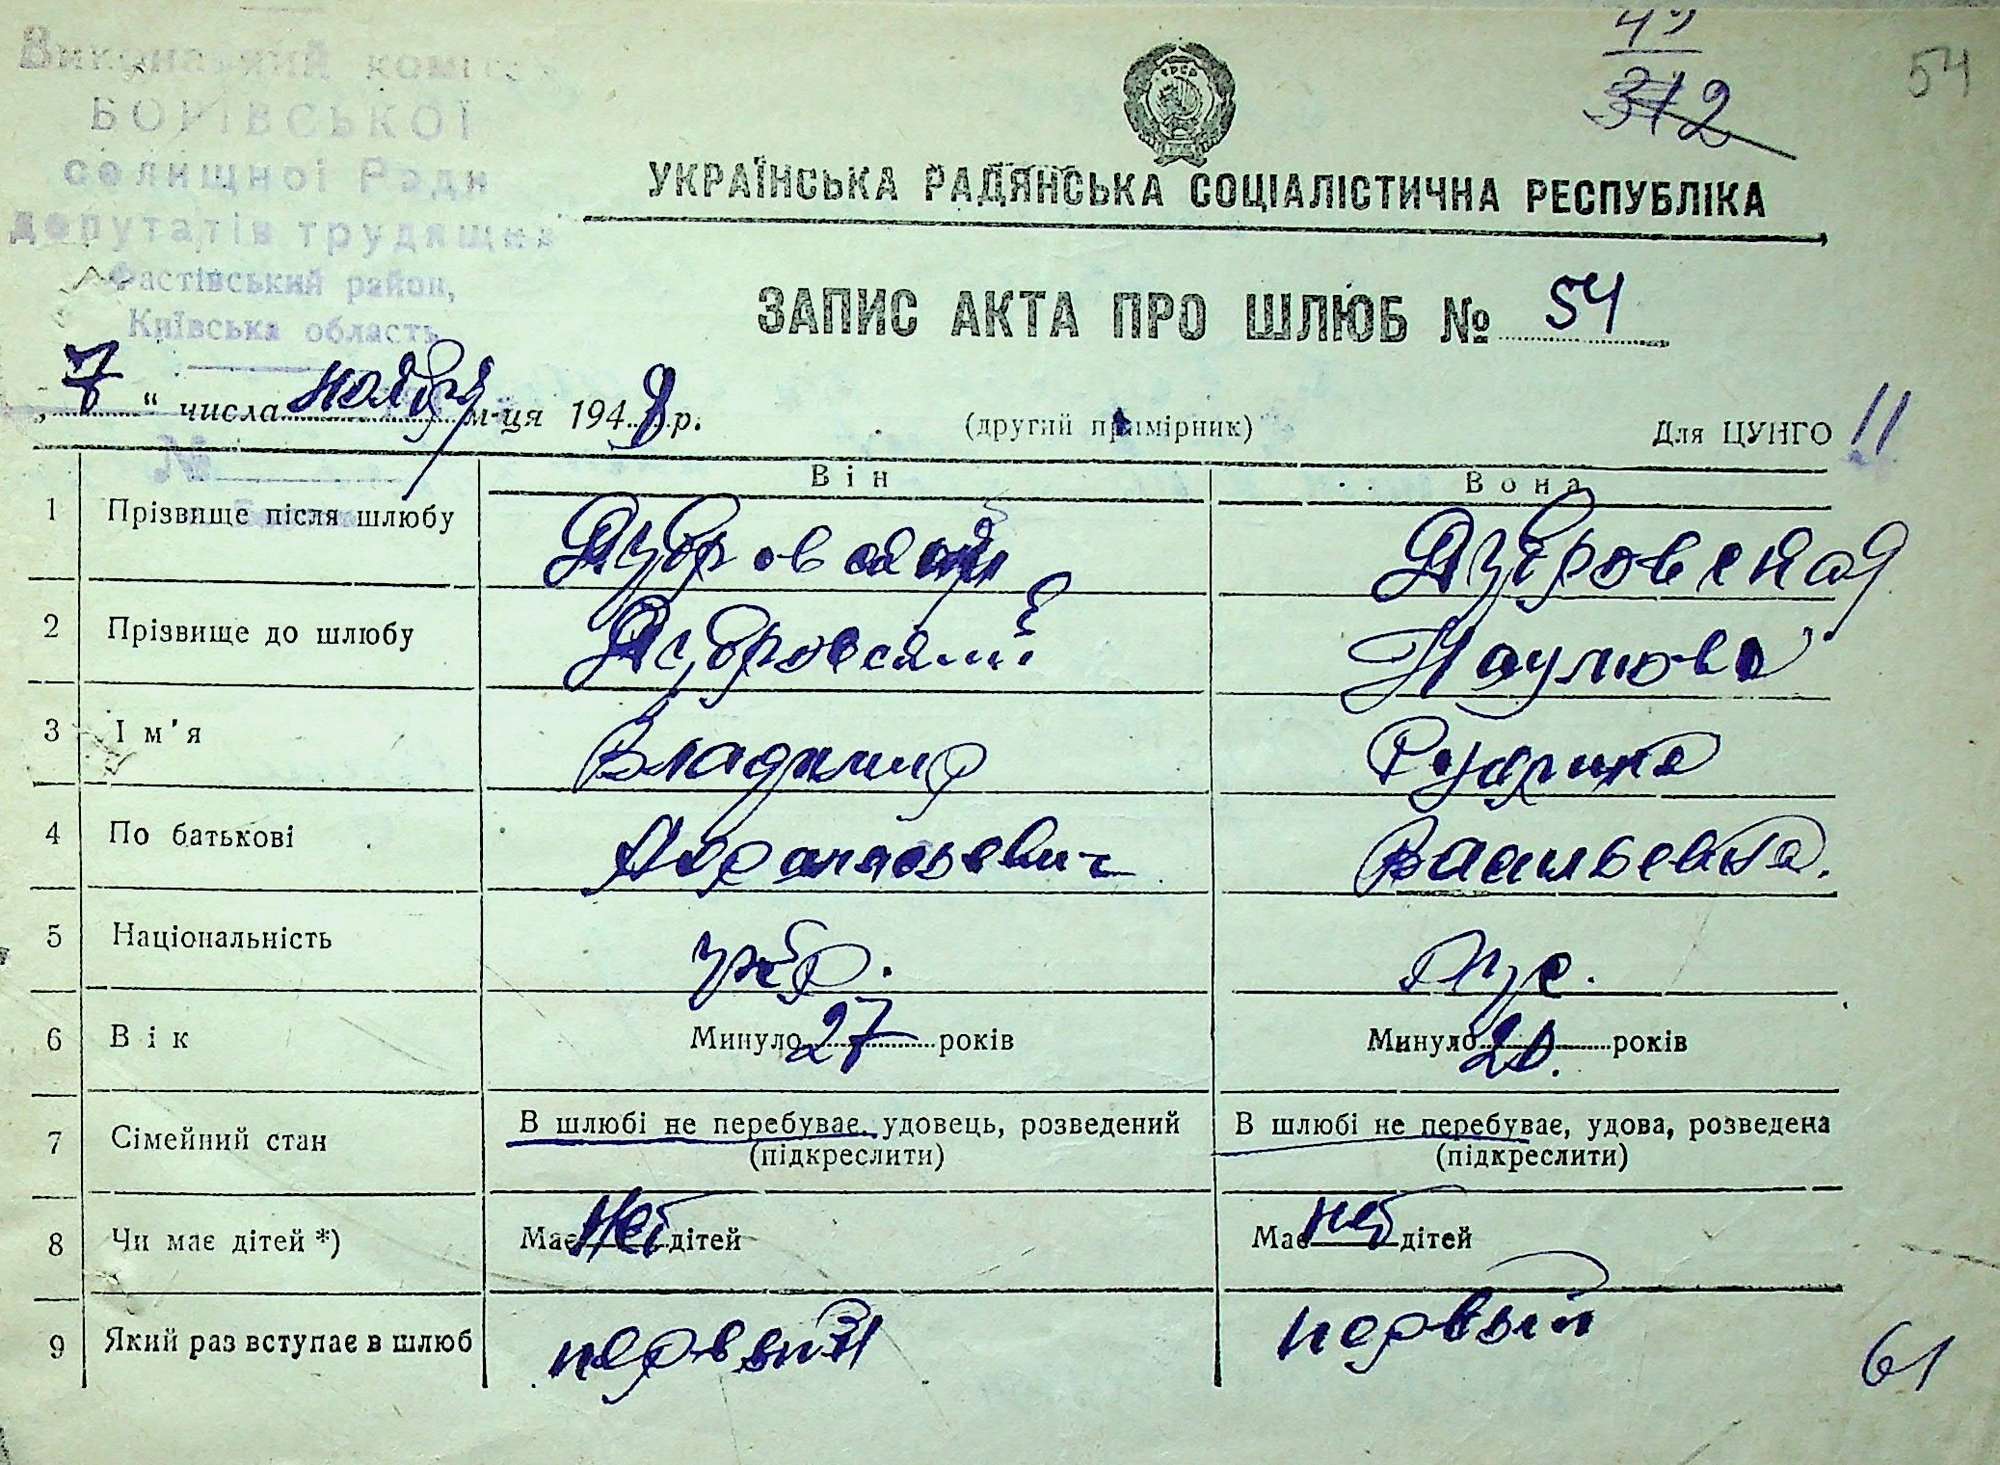 Виконавчий коміт
БОРІВСЬКОЇ
селищної Ради
депутатів трудящих
Фастівський район,
Київська область
№
49
312
54
УКРАЇНСЬКА РАДЯНСЬКА СОЦІАЛІСТИЧНА РЕСПУБЛІКА
ЗАПИС АКТА ПРО ШЛЮБ № 54
„7“ числа ноября м-ця 1948 р.
(другий примірник)
Для ЦУНГО 11
Він Вона
1 Прізвище після шлюбу Дубровский Дубровская
2 Прізвище до шлюбу Дубровский Наумова
3 Ім'я Владимир
4 По батькові Афанасьевич Васильевна.
5 Національність укр. рус.
6 Вік Минуло 27 років Минуло 20. років
7 Сімейний стан В шлюбі не перебуває, удовець, розведений В шлюбі не перебуває, удова, розведена
(підкреслити) (підкреслити)
8 Чи має дітей *) Має нет дітей Має нет дітей
9 Який раз вступає в шлюб первый первый
61